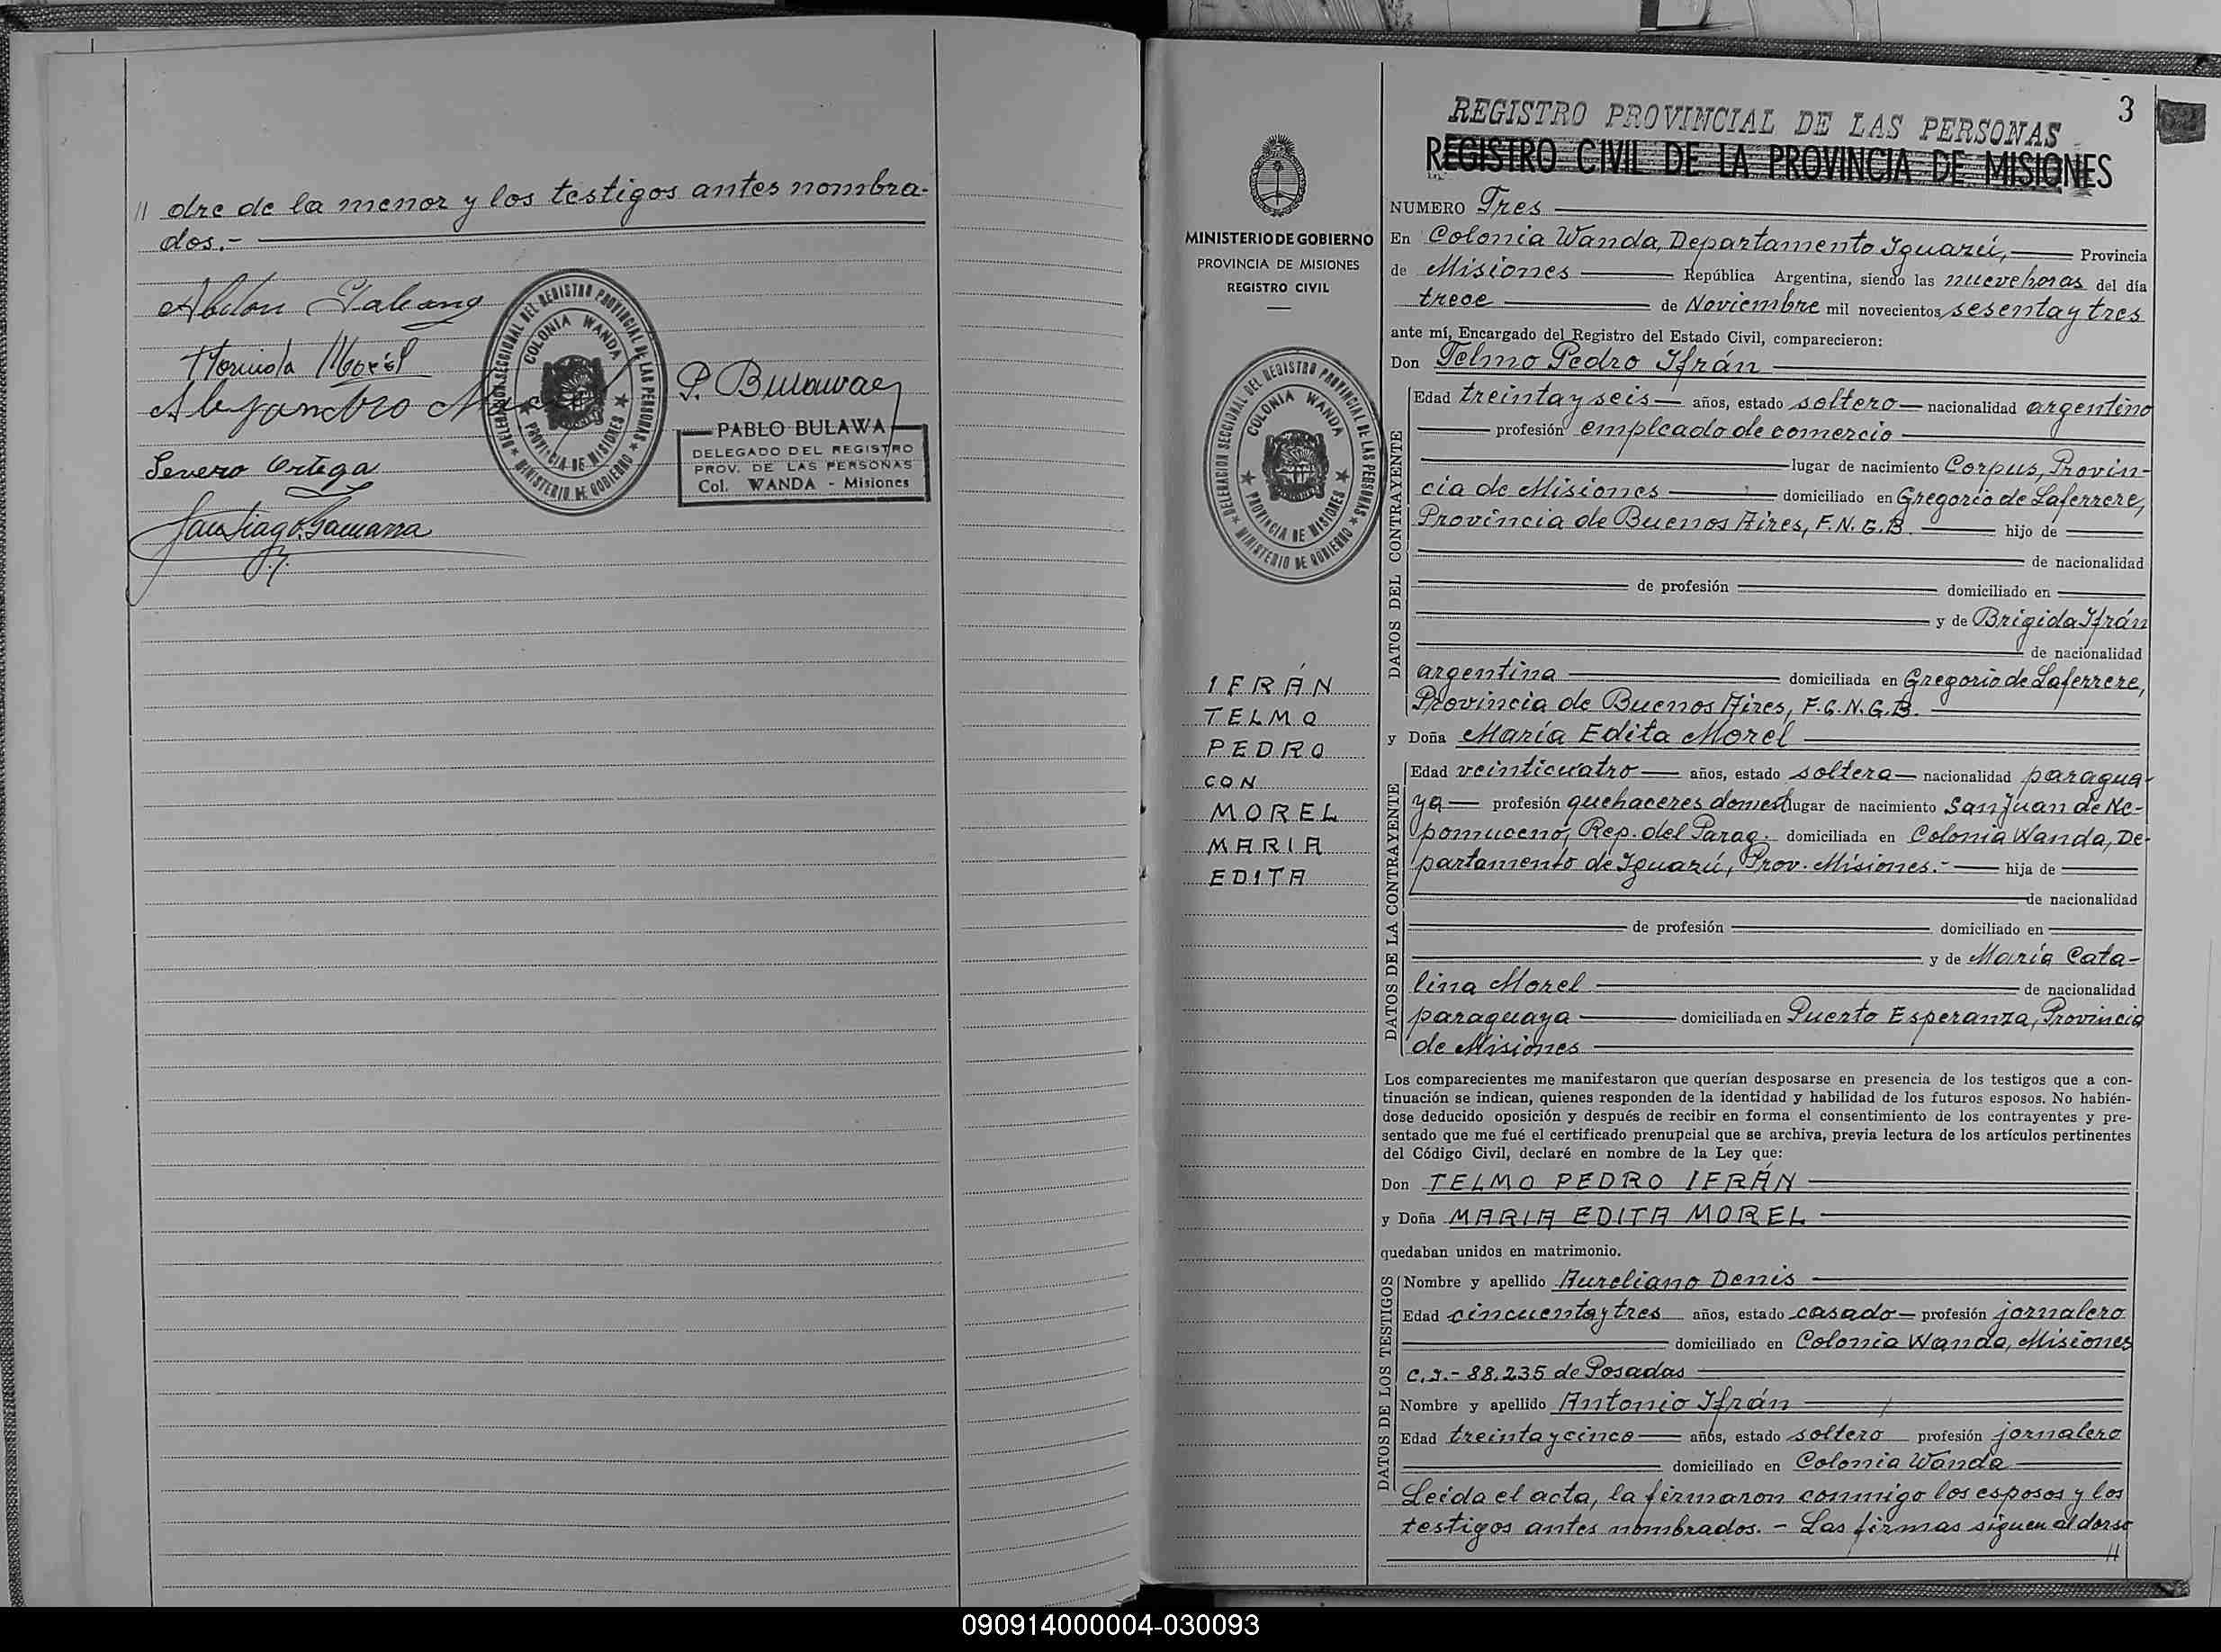 // dre de la menor y los testigos antes nombra-
dos.-
Severo Ortega
P. Bulawa
PABLO BULAWA
DELEGADO DEL REGISTRO
PROV. DE LAS PERSONAS
Col. WANDA - Misiones
DELEGACION SECCIONAL DEL REGISTRO PROVINCIAL DE LAS PERSONAS
COLONIA WANDA
PROVINCIA DE MISIONES
MINISTERIO DE GOBIERNO
3
REGISTRO PROVINCIAL DE LAS PERSONAS
REGISTRO CIVIL DE LA PROVINCIA DE MISIONES
MINISTERIO DE GOBIERNO
PROVINCIA DE MISIONES
REGISTRO CIVIL
DELEGACION SECCIONAL DEL REGISTRO PROVINCIAL DE LAS PERSONAS
COLONIA WANDA
PROVINCIA DE MISIONES
MINISTERIO DE GOBIERNO
IFRÁN
TELMO
PEDRO
CON
MOREL
MARIA
EDITA
NUMERO Tres
En Colonia Wanda, Departamento Iguazú, Provincia
de Misiones República Argentina, siendo las nueve horas del día
trece de Noviembre mil novecientos sesenta y tres
ante mí, Encargado del Registro del Estado Civil, comparecieron:
Don Telmo Pedro Ifrán
DATOS DEL CONTRAYENTE
Edad treinta y seis años, estado soltero nacionalidad argentino
profesión empleado de comercio
lugar de nacimiento Corpus, Provin-
cia de Misiones domiciliado en Gregorio de Laferrere,
Provincia de Buenos Aires, F.N.G.B. hijo de
de nacionalidad
de profesión domiciliado en
y de Brigida Ifrán
de nacionalidad
argentina domiciliada en Gregorio de Laferrere,
Provincia de Buenos Aires, F.G.N.G.B.
y Doña María Edita Morel
DATOS DE LA CONTRAYENTE
Edad veinticuatro años, estado soltera nacionalidad paragua-
ya profesión quehaceres domest lugar de nacimiento San Juan de Ne-
pomuceno, Rep. del Parag. domiciliada en Colonia Wanda, De-
partamento de Iguazú, Prov. Misiones.- hija de
de nacionalidad
de profesión domiciliado en
y de María Cata-
lina Morel de nacionalidad
paraguaya domiciliada en Puerto Esperanza, Provincia
de Misiones
Los comparecientes me manifestaron que querían desposarse en presencia de los testigos que a con-
tinuación se indican, quienes responden de la identidad y habilidad de los futuros esposos. No habién-
dose deducido oposición y después de recibir en forma el consentimiento de los contrayentes y pre-
sentado que me fué el certificado prenupcial que se archiva, previa lectura de los artículos pertinentes
del Código Civil, declaré en nombre de la Ley que:
Don TELMO PEDRO IFRÁN
y Doña MARIA EDITA MOREL
quedaban unidos en matrimonio.
DATOS DE LOS TESTIGOS
Nombre y apellido Aureliano Denis
Edad cincuenta y tres años, estado casado profesión jornalero
domiciliado en Colonia Wanda, Misiones
C.I.- 88.235 de Posadas
Nombre y apellido Antonio Ifrán
Edad treinta y cinco años, estado soltero profesión jornalero
domiciliado en Colonia Wanda
Leida el acta, la firmaron conmigo los esposos y los
testigos antes nombrados. - Las firmas siguen al dorso
//
090914000004-030093